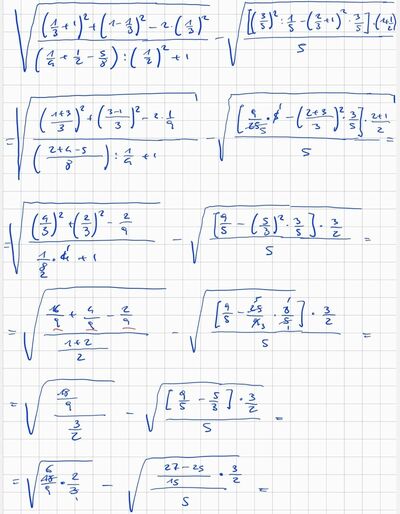 √(((1/3+1)²+(1-1/3)²-2·(1/3)²)/((1/4+1/2-5/8):(1/2)²+1)) - √([(3/5)²:1/5-(2/3+1)²·3/5]·(1+1/2)/5)
=√(((1+3)/3)²+((3-1)/3)²-2·1/9)/(((2+4-5)/8):1/4+1)) - √([9/25·5-((2+3)/3)²·3/5]·(2+1)/2/5) =
=√(((4/3)²+(2/3)²-2/9)/(1/8·4+1)) - √([9/5-(5/3)²·3/5]·3/2/5) =
=√((16/9+4/9-2/9)/((1+2)/2)) - √([9/5-25/9·3/5]·3/2/5) =
=√((18/9)/(3/2)) - √([9/5-5/3]·3/2/5) =
=√(18/9·2/3) - √((27-25)/15·3/2/5) =